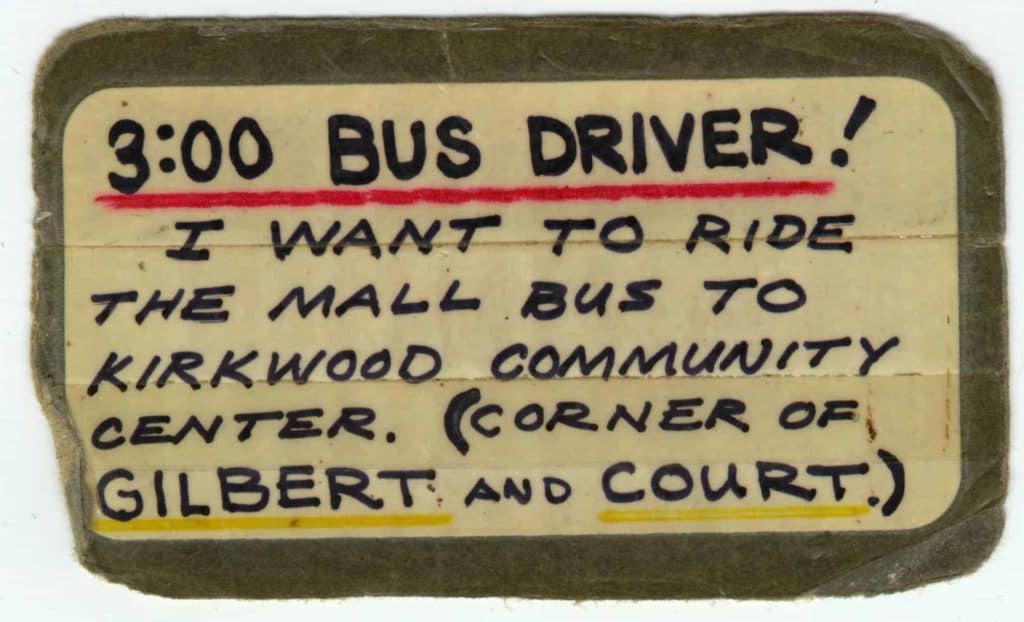 3:00 BUS DRIVER!
I WANT TO RIDE
THE MALL BUS TO
KIRKWOOD COMMUNITY
CENTER. (CORNER OF
GILBERT AND COURT.)